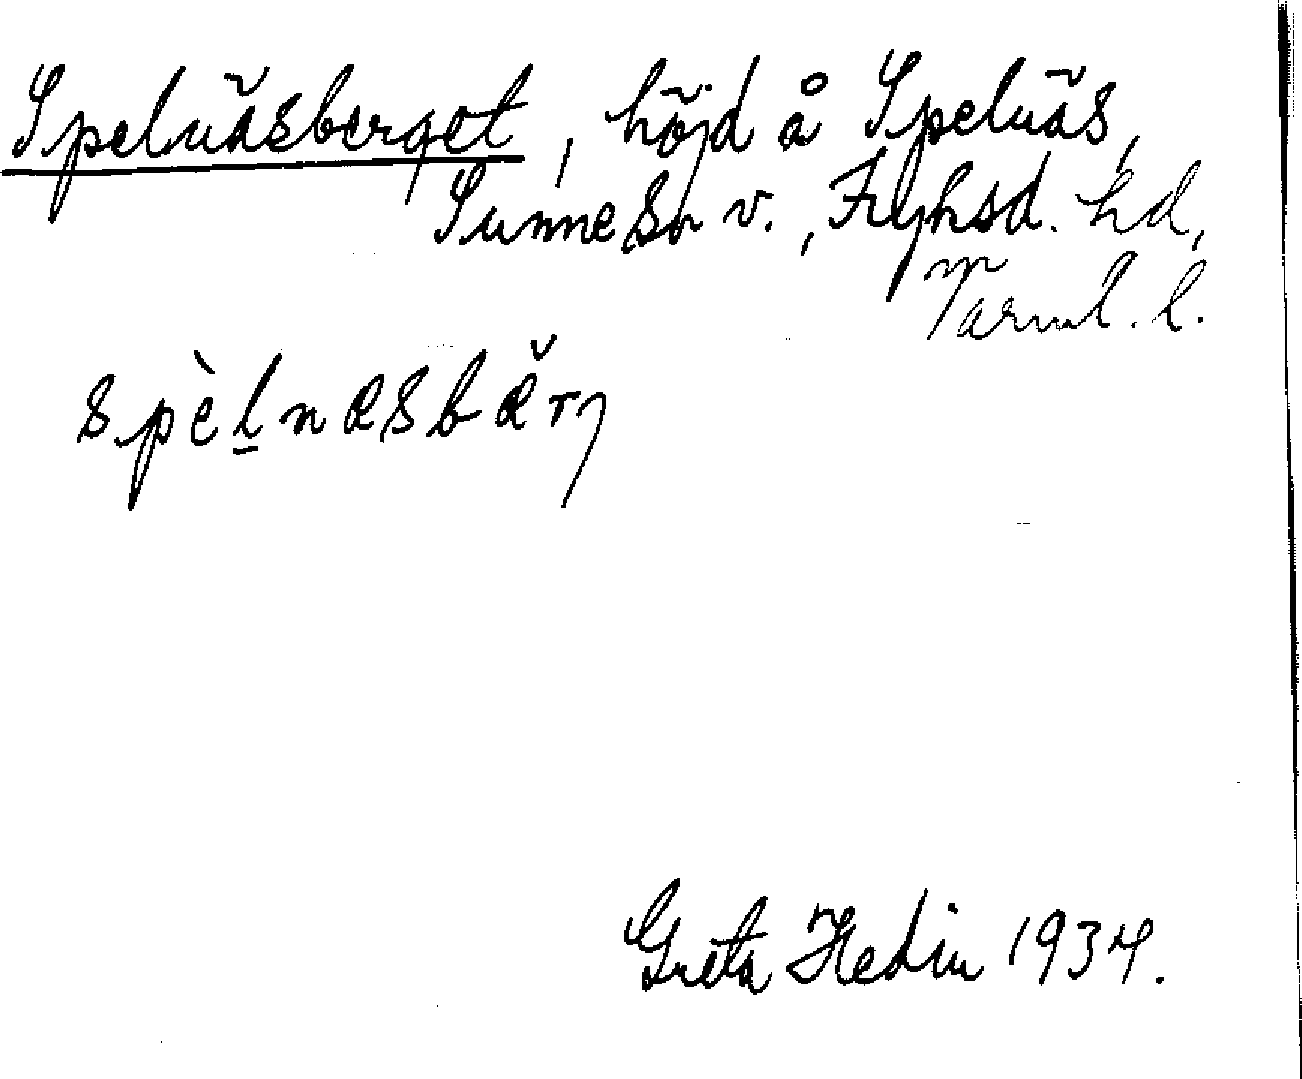 Spelnäsberget, höjd å Spelnäs,
Sunne sn v., Fryksd. hd,
Värml. l.
spèl̲næsbæ̌rj
Greta Hedin 1934.